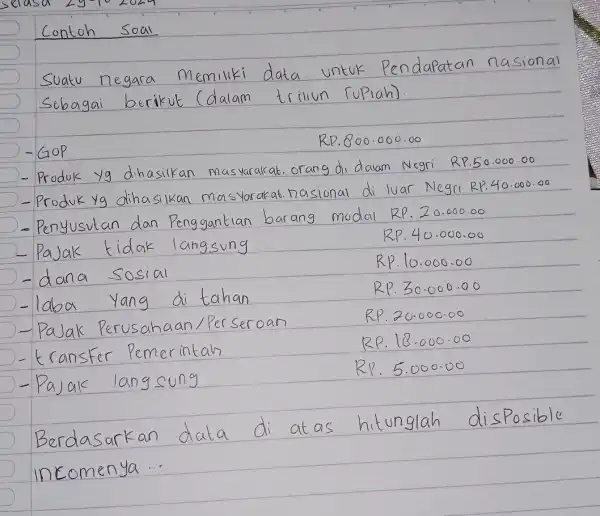 Selasa 29-10-2024
Contoh Soal
Suatu negara memiliki data untuk Pendapatan nasional
Sebagai berikut (dalam triliun rupiah)
- GDP RP.800.000.00
- Produk yg dihasilkan masyarakat. orang di dalam Negri RP.50.000.00
- Produk yg dihasilkan masyarakat nasional di luar Negri RP.40.000.00
- Penyusulan dan Penggantian barang modal RP. 20.000.00
- Pajak tidak langsung RP.40.000.00
- dana sosial RP.10.000.00
- laba yang di tahan RP.30.000.00
- Pajak Perusahaan/Perseroan RP.20.000.00
- transfer Pemerintah RP.18.000.00
- Pajak langsung RP. 5.000.00
Berdasarkan data di atas hitunglah disposible
incomenya ...